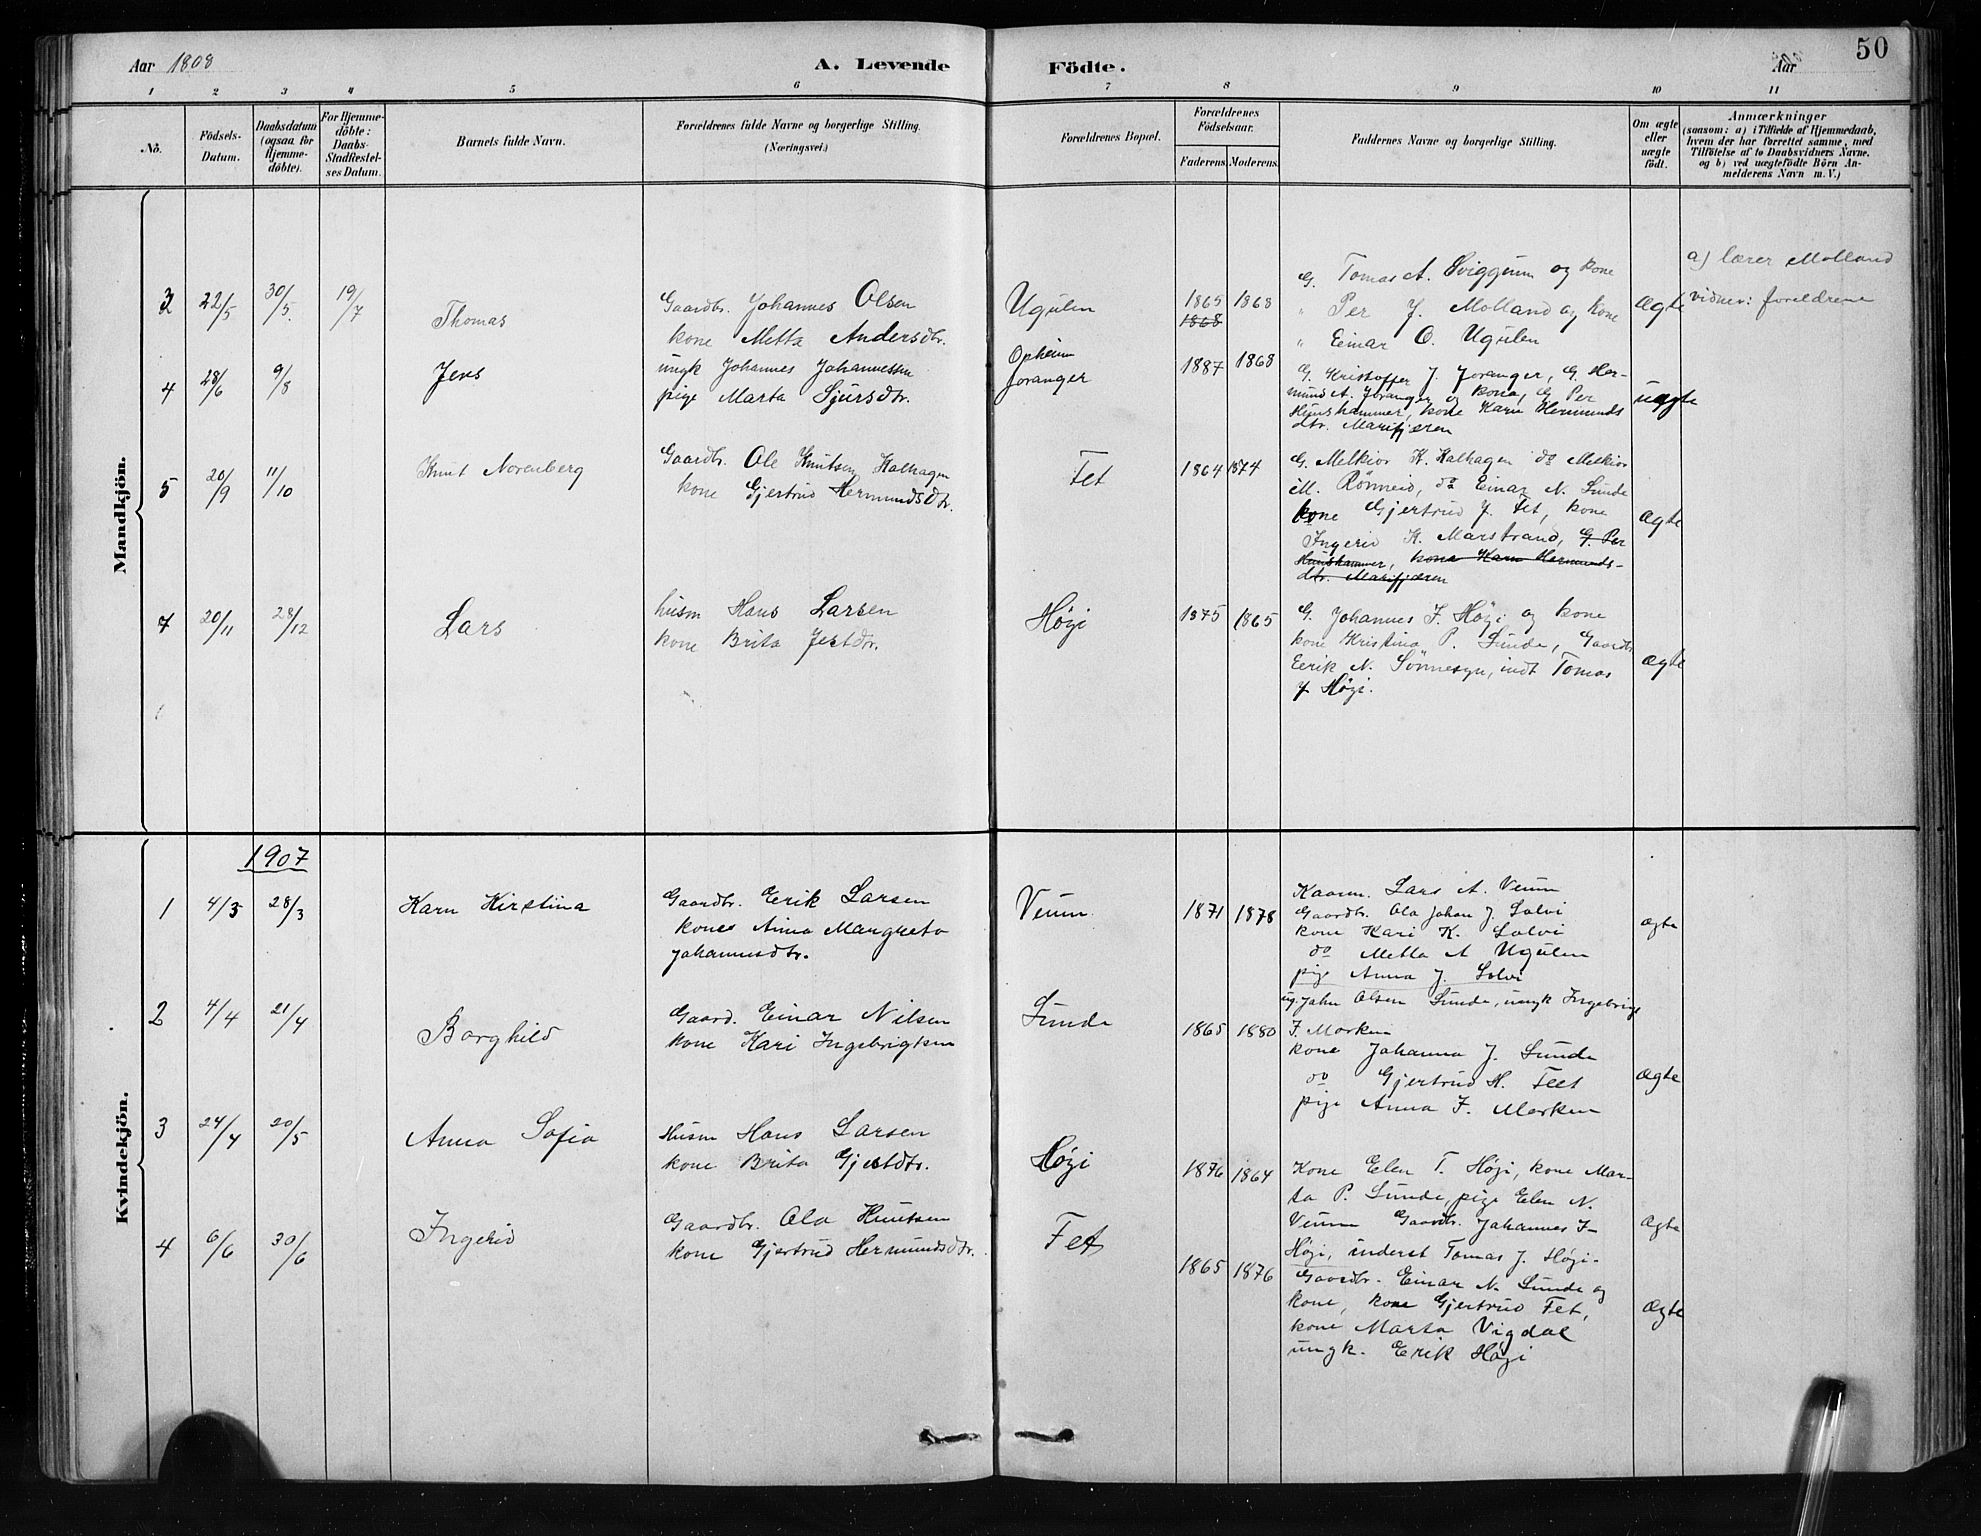 Aar 1808
A. Levende Födte.
Aar
50
1 2 3 4 5 6 7 8 9 10 11
No.
Födsels-Datum.
Daabsdatum (ogsaa for Hjemme-döbte).
For Hjemme-döbte: Daabs-Stadfæstel-ses Datum.
Barnets fulde Navn.
Forældrenes fulde Navne og borgerlige Stilling.
(Næringsvei.)
Forældrenes Bopæl.
Forældrenes Födselsaar.
Faderens. Moderens.
Faddernes Navne og borgerlige Stilling.
Om ægte eller uægte födt.
Anmærkninger
(saasom: a) i Tilfælde af Hjemmedaab,
hvem der har forrettet samme, med
Tilföielse af to Daabsvidners Navne,
og b) ved uægtefödte Börn An-
melderens Navn m. V.)
Mandkjön.
3 22/5 30/5. 19/7 Thomas
Gaardbr. Johannes Olsen
kone Metta Andersdtr.
Ugulen
1865 1868
1868
G. Tomas A. Sviggum og kone
" Per J. Molland og kone
" Einar O. Ugulen
Ægte
a) lærer Molland
vidner: forældrene
4 28/6 9/8 Jens
ungk Johannes Johannessen
pige Marta Sjursdtr.
Opheim
Joranger
1887 1868
G. Kristoffer J. Joranger, G. Her-
mund A. Joranger og kona, G Per
Hunshammer, kone Karn Hermunds
dtr. Marifjæren
uægte
5 20/9 11/10 Knut Norenberg
Gaardbr. Ole Knutsen Kalhagen
kone Gjertrud Hermundsdtr.
Fet
1864 1874
G. Melkior K. Kalhagen do Melkior
M. Rönneid, do Einar N. Sunde
kone Gjertrud J. Fet, kone
Ingerid K. Marstrand, G. Per
Hunshammer, kona Karn Hermunds-
dtr. Marifjæren
ægte
7 20/11 28/12 Lars
husm Hans Larsen
kone Brita Jestdtr.
Høgi
1875 1865
G. Johannes I. Høgi og kone
kone Kristina P. Sunde, Gaardbr
Eerik N. Sönnesyn, indt Tomas
J Høgi.
Ægte
Kvindekjön.
1907
1 4/3 28/3 Karn Kirstina
Gaardbr. Eerik Larsen
kones Anna Margreta
Johannesdtr.
Veum
1871 1878
Kaarm. Lars A. Veum
Gaardbr. Ola Johan J. Solvi
kone Kari K. Solvi
do Metta A Ugulen
pige Anna J. Solvi
Ægte
2 4/4 21/4 Borghild
Gaard. Einar Nilsen
kone Kari Ingebrigtsen
Sunde
1865 1880
ug. Jahn Olsen Sunde, ungk Ingebrigt
I. Morken
kone Johanna J. Sunde
do Gjertrud H. Feet
pige Anna I. Morken
Ægte
3 24/4 20/5 Anna Sofia
Husm Hans Larsen
kone Brita Gjestdtr.
Høgi
1876 1864
Kone Elen T. Høgi, kone Mar-
ta P. Sunde, pige Elen N.
Veum Gaardbr. Johannes I-
Høgi, inderst Tomas J. Høgi.
Ægte
4 6/6 30/6 Ingerid
Gaardbr. Ola Knutsen
kone Gjertrud Hermundsdtr.
Fet
1865 1876
Gaardbr. Einar N. Sunde og
kone, kone Gjertrud Fet,
kone Marta Vigdal
ungk. Erik Høgi
Ægte